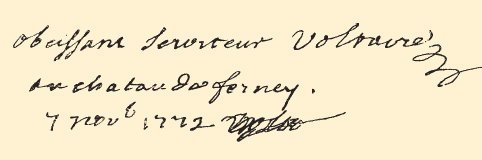 obeissant serviteur Voltaire
au chatau de ferney.
7 novb 1772